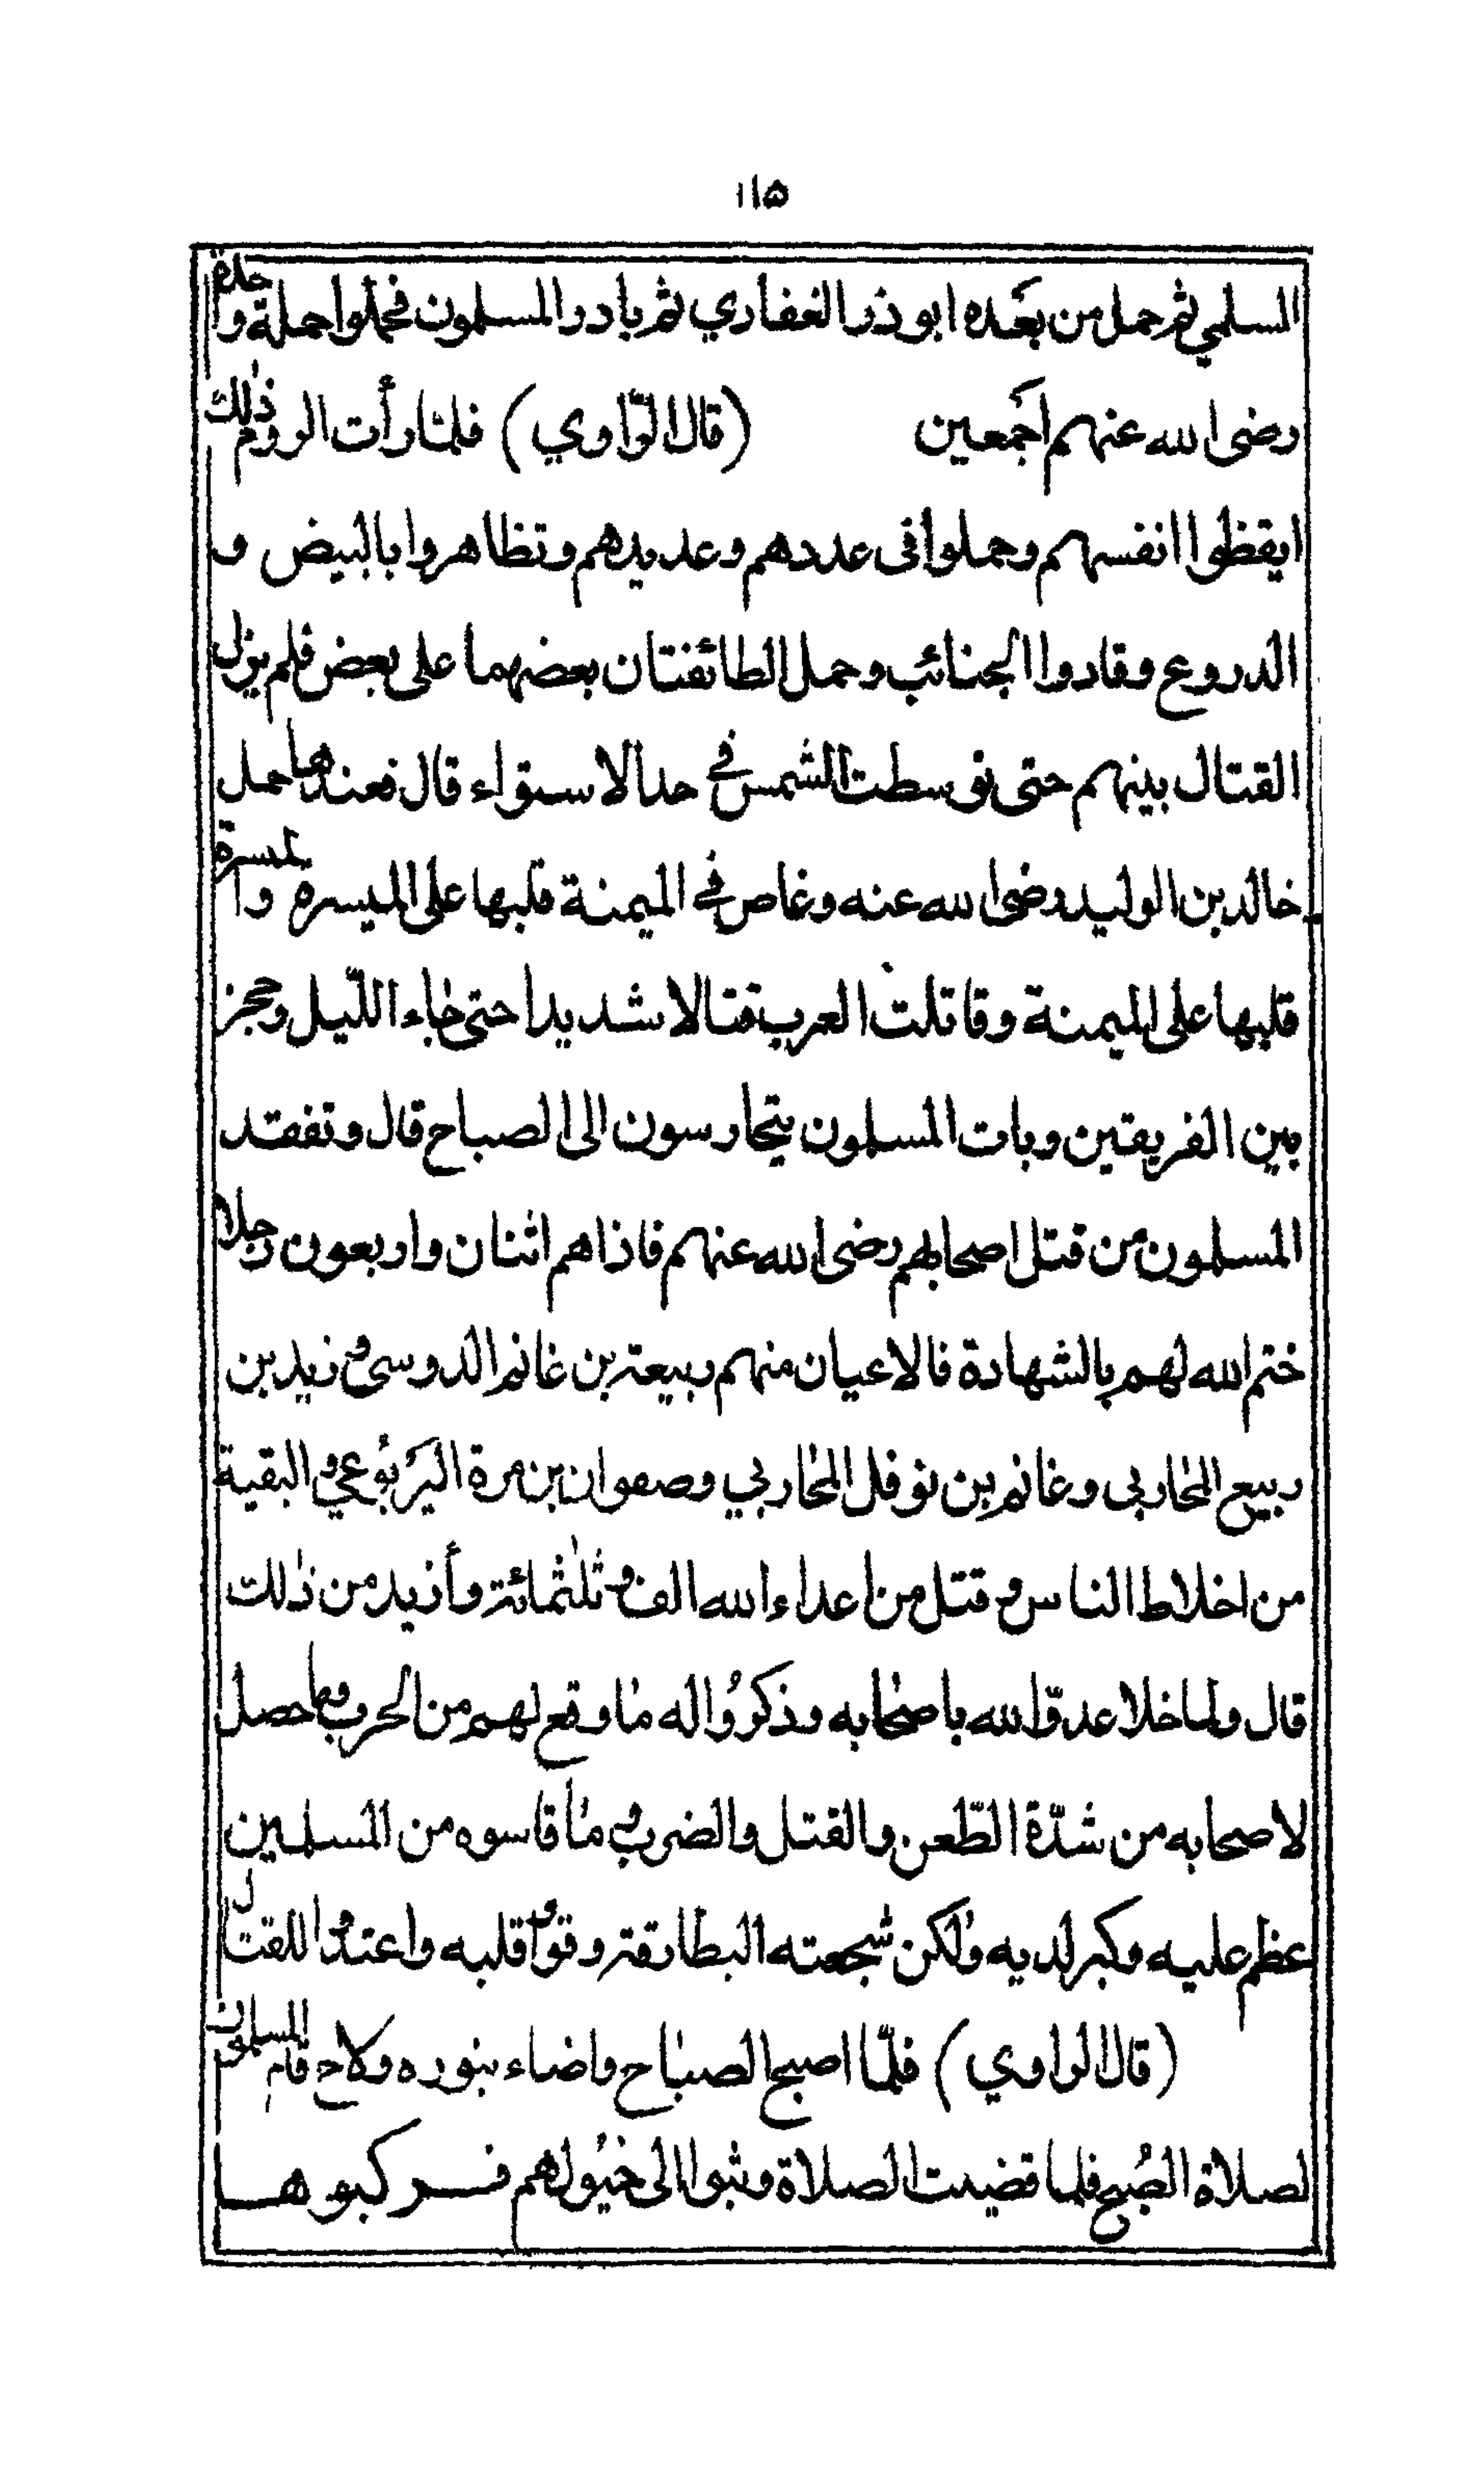 ١١٥
السلمي ثم حمل من بعده ابو ذر الغفاري ثم بادر المسلمون فحملوا حملة واحدة
رضى الله عنهم اجمعين (قال الراوي) فلما رأت الروم ذلك
ايقظوا انفسهم وحملوا فى عددهم وعديدهم وتظاهروا بالبيض و
الدروع وقادوا الجنائب وحمل الطائفتان بعضهما على بعض فلم يزل
القتال بينهم حتى توسطت الشمس في حد الاستواء قال فعندها حمل
خالد بن الوليد رضى الله عنه وغاص في الميمنة قلبها على الميسرة والميسرة
قلبها على الميمنة وقاتلت العرب قتالا شديدا حتى جاء الليل وحجز
بين الفريقين وبات المسلمون يتحارسون الى الصباح قال وتفقد
المسلمون من قتل اصحابهم رضى الله عنهم فاذا هم اثنان واربعون رجلا
ختم الله لهم بالشهادة فالاعيان منهم ربيعة بن غانم الدوسى و زيد بن
ربيع المحاربى وغانم بن نوفل المحاربي وصفوان بن مرة اليربوعي و البقية
من اخلاط الناس و قتل من اعداء الله الف و ثلثمائة وأزيد من ذلك
قال ولما خلا عدو الله باصحابه وذكروا له ما وقع لهم من الحرب وما حصل
لاصحابه من شدة الطعن والقتل والضرب و ما قاسوه من المسلمين
عظم عليه وكبر لديه ولكن شجعته البطارقة وقووا قلبه واعتدوا للقتال
(قال الراوي) فلما اصبح الصباح واضاء بنوره ولاح قام المسلمون
لصلاة الصبح فلما قضيت الصلاة وثبوا الى خيولهم فركبوها